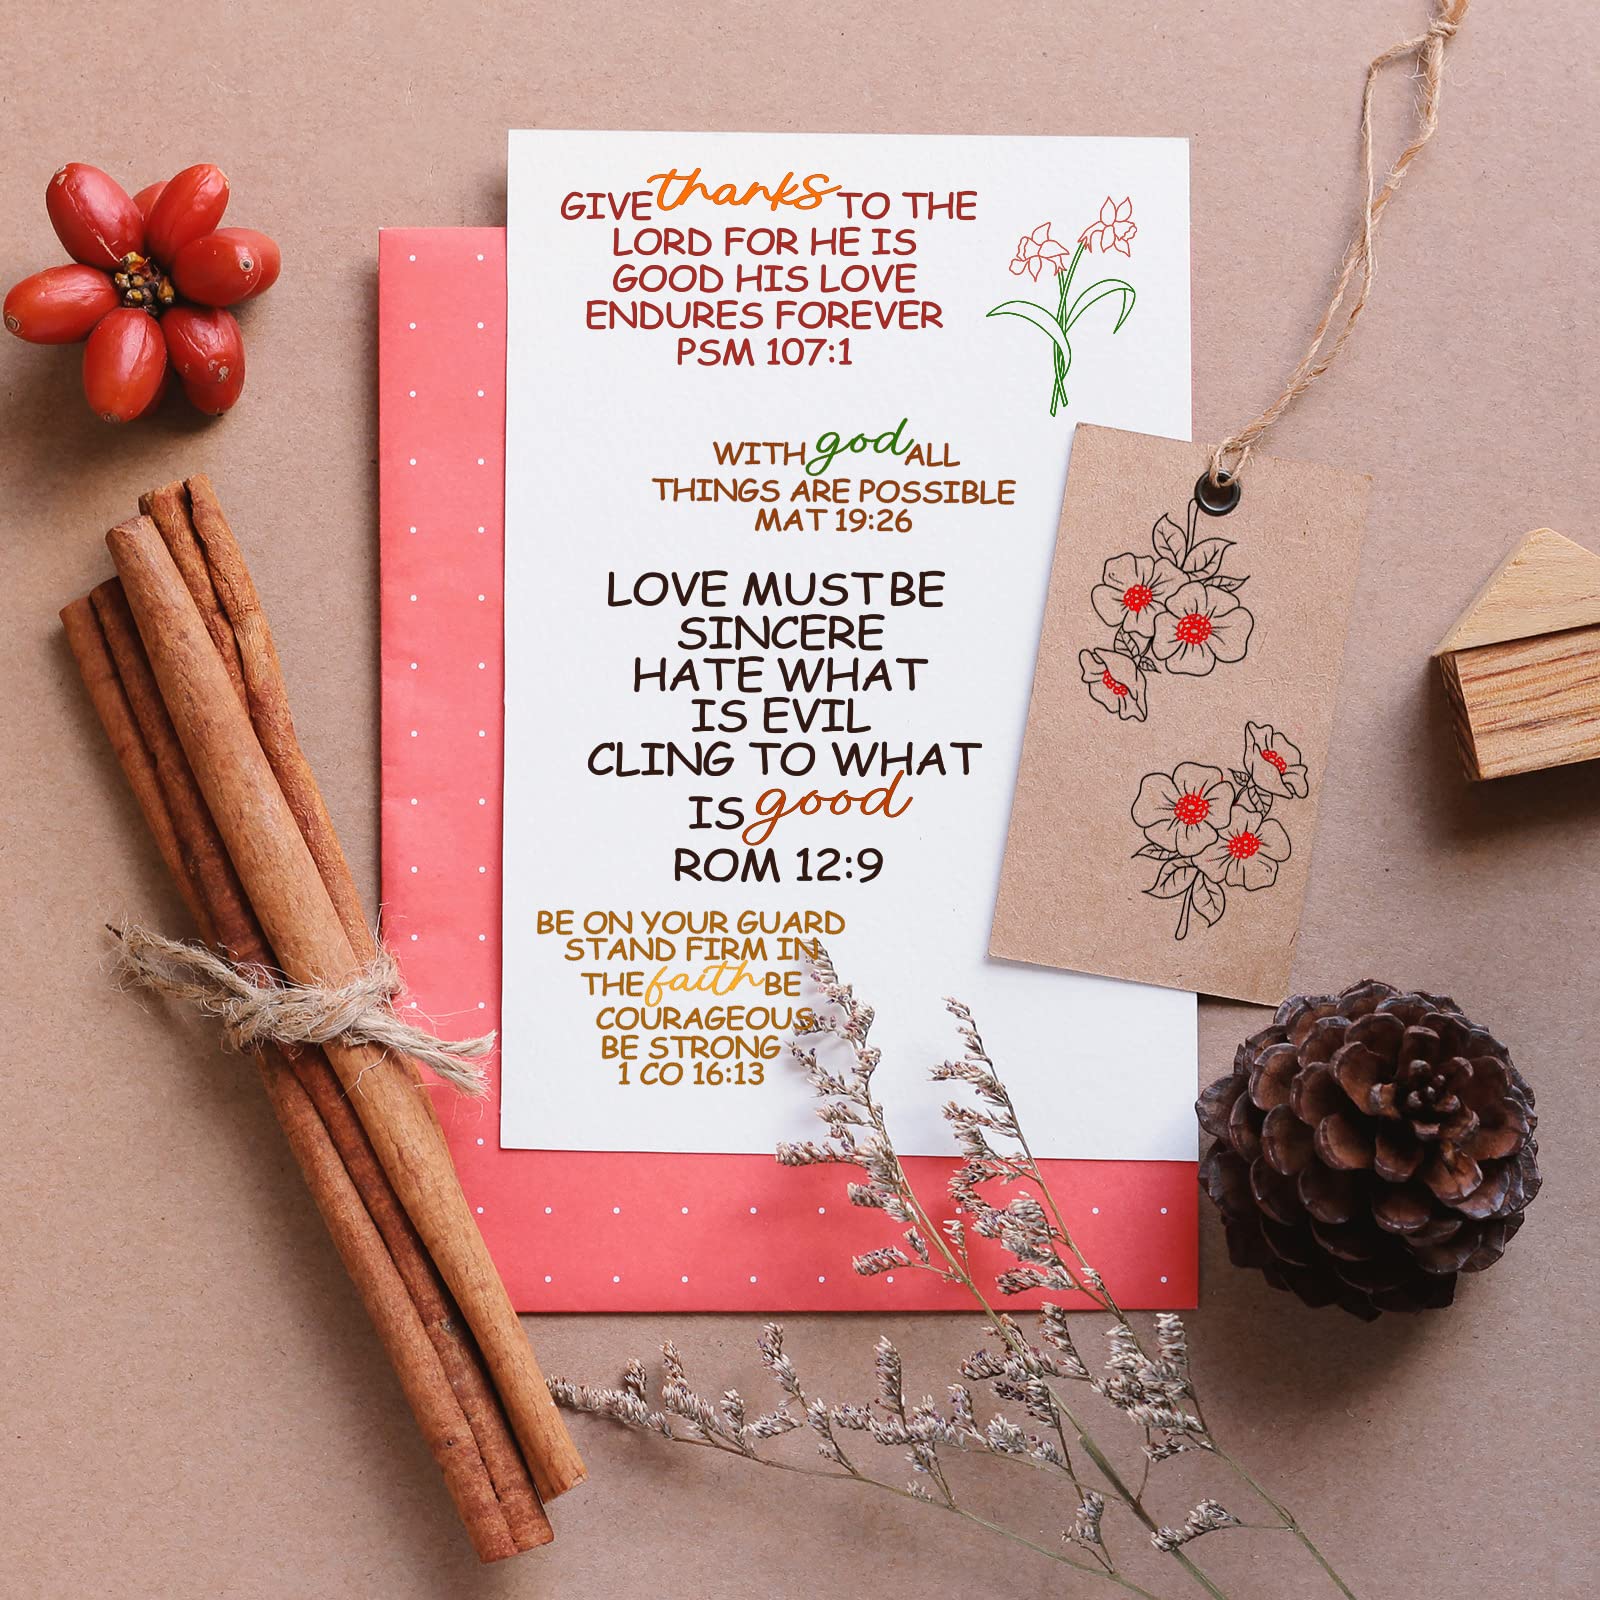 GIVE thanks TO THE
LORD FOR HE IS
GOOD HIS LOVE
ENDURES FOREVER
PSM 107:1
WITH god ALL
THINGS ARE POSSIBLE
MAT 19:26
LOVE MUST BE
SINCERE
HATE WHAT
IS EVIL
CLING TO WHAT
IS good
ROM 12:9
BE ON YOUR GUARD
STAND FIRM IN
THE faith BE
COURAGEOUS
BE STRONG
1 CO 16:13